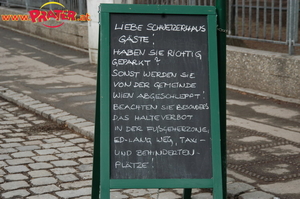 PRATER.at
LIEBE SCHWEIZERHAUS
GÄSTE!
HABEN SIE RICHTIG
GEPARKT?
SONST WERDEN SIE
VON DER GEMEINDE
WIEN ABGESCHLEPPT!
BEACHTEN SIE BESONDERS
DAS HALTEVERBOT
IN DER FUßGEHERZONE,
RD-LANG WEG, TAXI-
UND BEHINDERTEN-
PLÄTZE!